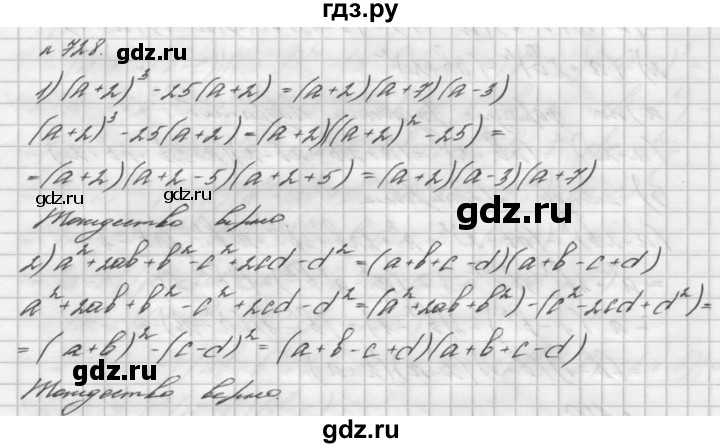 гдз.ру
№ 728.
gdz.ru
gdz.ru
1) (a+2)³ - 25(a+2) = (a+2)(a+7)(a-3)
(a+2)³ - 25(a+2) = (a+2)((a+2)² - 25) =
= (a+2)(a+2-5)(a+2+5) = (a+2)(a-3)(a+7)
gdz.ru
gdz.ru
gdz.ru
Тождество верно
2) a² + 2ab + b² - c² + 2cd - d² = (a+b+c-d)(a+b-c+d)
a² + 2ab + b² - c² + 2cd - d² = (a² + 2ab + b²) - (c² - 2cd + d²) =
= (a+b)² - (c-d)² = (a+b-c+d)(a+b+c-d)
Тождество верно.
gdz.ru
gdz.ru
gdz.ru